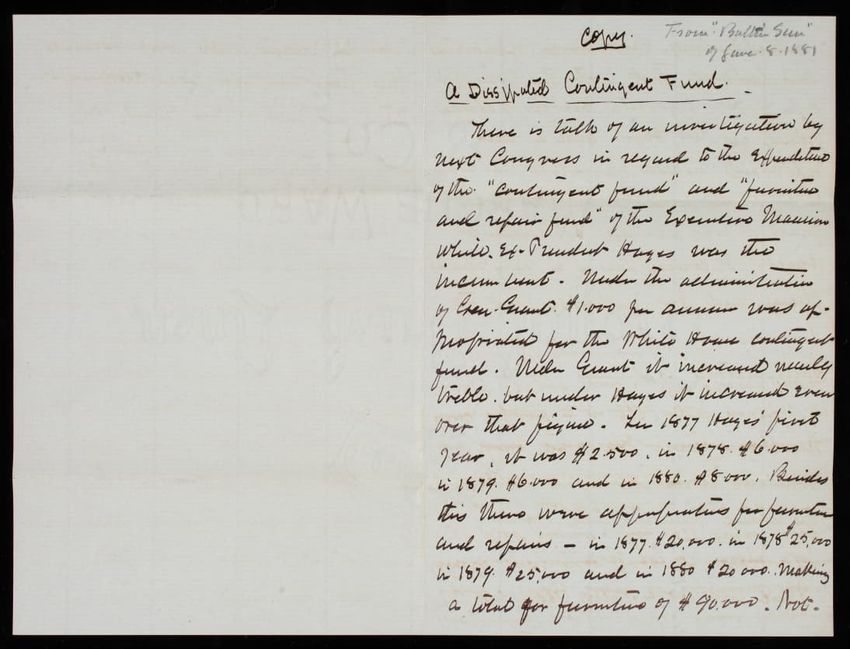 Copy.
From "Balt Sun"
of June. 8. 1881
A Dissipated Contingent Fund.
There is talk of an investigation by
next Congress in regard to the Expenditure
of the "contingent fund" and "furniture
and repair fund" of the Executive Mansion
while Ex-President Hayes was the
incumbent. Under the administration
of Gen. Grant. $1.000 per annum was ap-
propriated for the White House contingent
fund. Under Grant it increased nearly
treble. but under Hayes it increased even
over that figure. In 1877 Hayes' first
year, it was $2.500. in 1878. $6.000
in 1879. $6.000 and in 1880. $8.000. Besides
this there were appropriations for furniture
and repairs – in 1877. $20,000. in 1878 $25,000
in 1879. $25000 and in 1880 $20000. Making
a total for furniture of $90.000. Not-